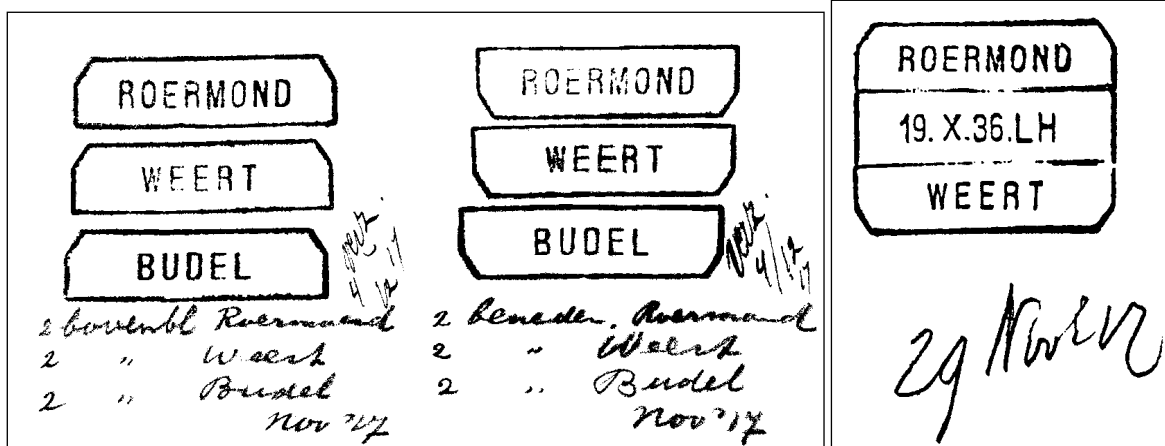 ROERMOND
WEERT
BUDEL
verz.
4/12 17
2 bovenbl Roermond
2 " Weert
2 " Budel
Nov '17
ROERMOND
WEERT
BUDEL
verz.
4/12 17
2 beneden. Roermond
2 " Weert
2 " Budel
Nov '17
ROERMOND
19. X.36.LH
WEERT
29 Nov